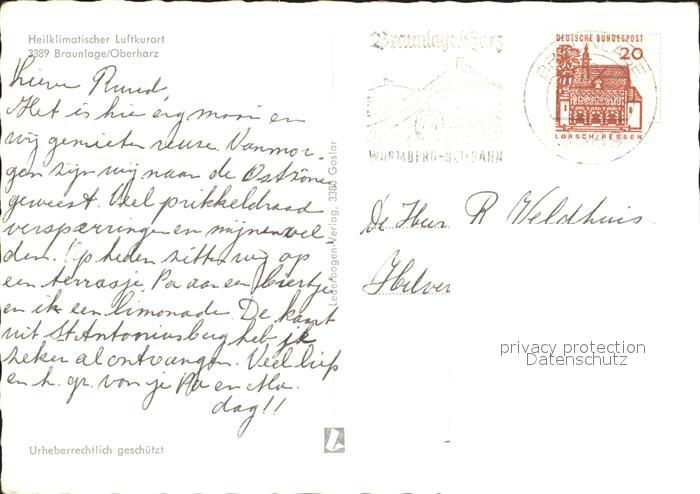 Heilklimatischer Luftkurort
3389 Braunlage/Oberharz
Lieve Ruud,
Het is hier erg mooi en
wij genieten reuze. Vanmor-
gen zijn wij naar de Ostzône
geweest. Veel prikkeldraad
versperringen en mijnenvel
den. Op heden zitten wij op
een terrasje, Pa aan een biertje
en ik een limonade. De kaart
uit St Antoniusburg heb je
zeker al ontvangen. Veel liefs
en h. gr. van je Pa en Ma.
dag!!
Urheberrechtlich geschützt
Lederbogen-Verlag, 3380 Goslar
Braunlage/Harz
WURMBERG-SEILBAHN
BRAUNLAGE
DEUTSCHE BUNDESPOST
20
LORSCH/HESSEN
De Heer R Veldhuis
Hilver
privacy protection
Datenschutz